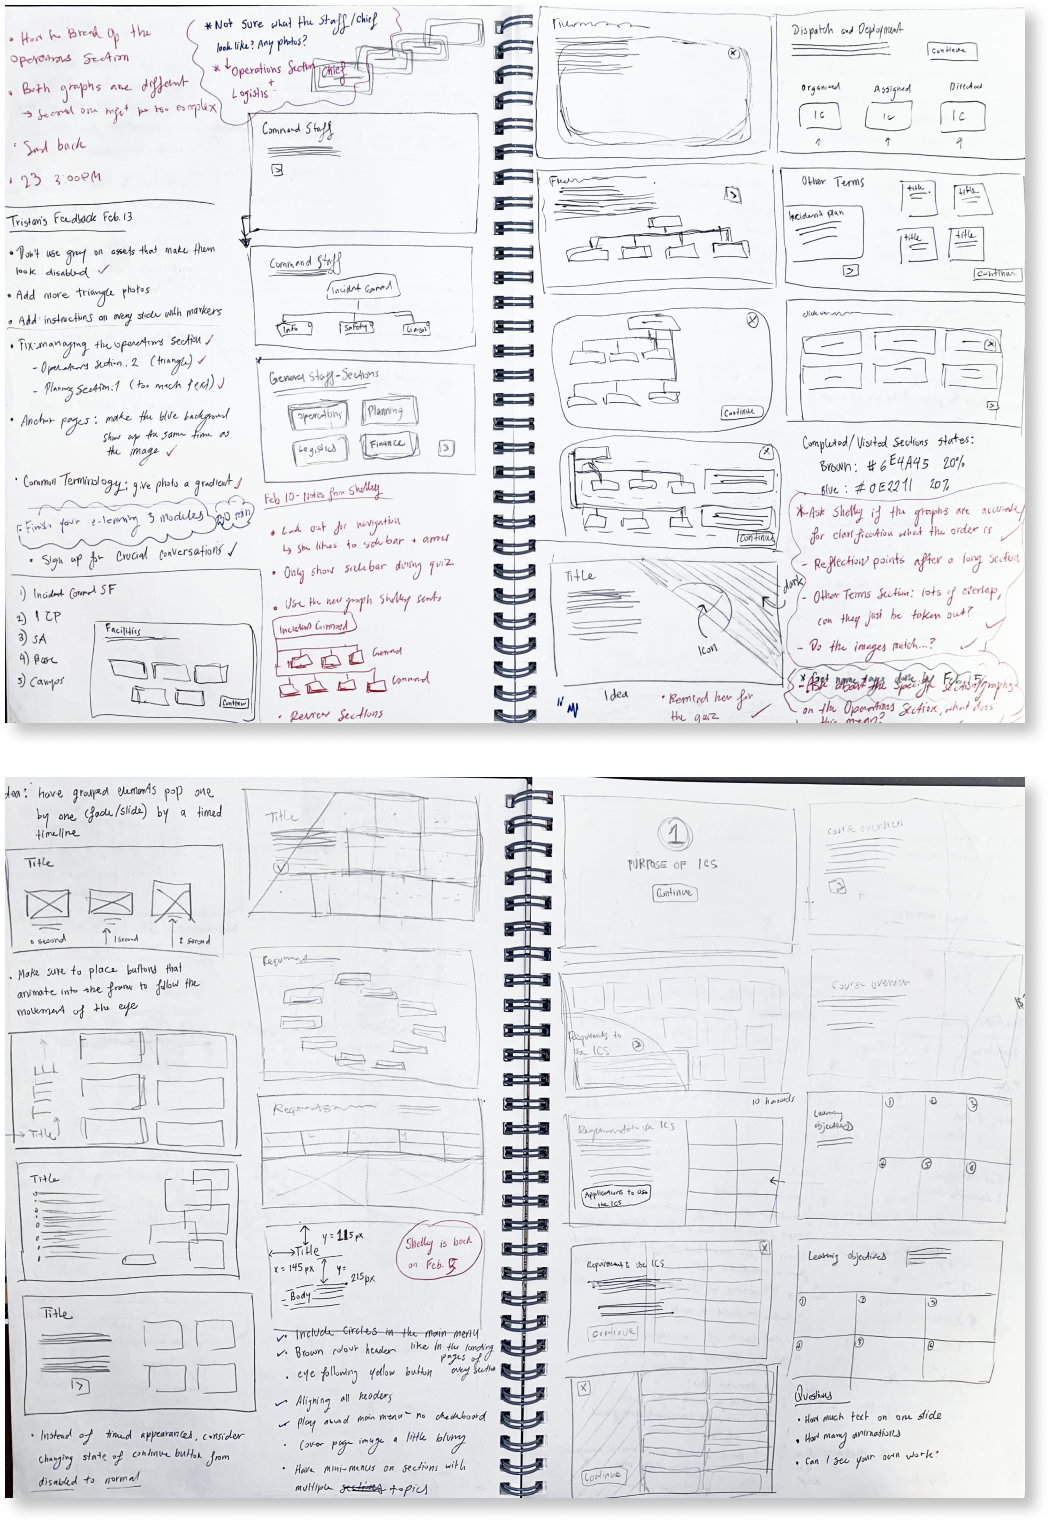 • How to Break Up the
Operations Section
• Both graphs are different
→ Second one might be too complex
• Send back
• 23 3:00PM
* Not sure what the Staff/Chief
look like? Any photos?
* ↓ Operations Section Chief
+
Logistics
Tristan's Feedback Feb.13
• Don't use grey on assets that make them
look disabled ✓
• Add more triangle photos
• Add instructions on every slide with markers
• Fix: managing the operations section ✓
- Operations section: 2 (triangle) ✓
- Planning Section: 1 (too much text) ✓
• Anchor pages: make the blue background
show up the same time as
the image ✓
• Common Terminology: give photo a gradient ✓
• Finish your e-learning 3 modules 30 min
• Sign up for Crucial conversations ✓
1) Incident Command SF
2) ICP
3) SA
4) Base
5) Camps
Facilities
Continue
Command Staff
Command Staff
Incident Command
Info
Safety
Liaison
General Staff-Sections
Operations
Planning
Logistics
Finance
Feb 10 - Notes from Shelley
• Look out for navigation
↳ she likes to sidebar + arrow
• Only show sidebar during quiz
• Use the new graph Shelley sents
Incident Command
Command
Command
• Review Sections
X
Dispatch and Deployment
Continue
Organized
Assigned
Directed
IC
IC
IC
Other Terms
Incident plan
title
title
title
title
Continue
X
Continue
X
X
Continue
Completed/Visited Sections states:
Brown: #6E4A45 20%
Blue: #0E2211 20%
* Ask Shelley if the graphs are accurate/
for clarification what the order is ✓
- Reflection points after a long section
- Other Terms Section: lots of overlap,
can they just be taken out? ✓
- Do the images match...? ✓
- Ask about the specific section/graphs
on the Operations Section, what does
this mean?
Title
dark
Icon
Idea
• Remind her for
the quiz ✓
Idea: have grouped elements pop one
by one (fade/slide) by a timed
timeline
Title
0 second
1 second
2 second
• Make sure to place buttons that
animate into the frame to follow the
movement of the eye
TITLE
Title
Title
Title
• Instead of timed appearances, consider
changing state of continue button from
disabled to normal
Title
Title
y = 115px
x = 145px
y =
215px
Body
Shelley is back
on Feb. 5
• Include circles in the main menu
✓ Brown colour header like in the landing
pages of
every section
• eye following yellow button
✓ Aligning all headers
✓ Play around main menu - no checkboard
• Cover page image a little blurry
• Have mini-menus on sections with
multiple sections topics
1
PURPOSE OF ICS
Continue
Course overview
Requirements to
use ICS
10 hazards
Course overview
Requirements to use ICS
Applications to use
the ICS
Learning
objectives
1
2
3
4
5
6
Requirements to use ICS
X
Continue
Learning objectives
1
2
3
4
5
6
X
Continue
Questions
• How much text on one slide
• How many animations
• Can I see your own work?